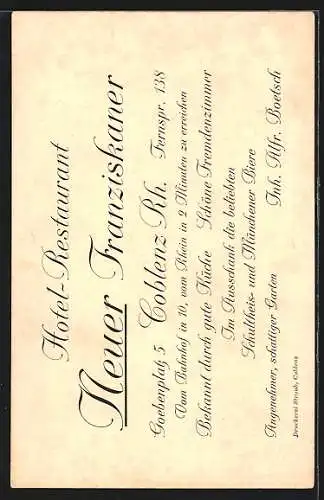 Hotel-Restaurant
Neuer Franziskaner
Goebenplatz 5 Coblenz Rh. Fernspr. 138
Vom Bahnhof in 10, vom Rhein in 2 Minuten zu erreichen
Bekannt durch gute Küche Schöne Fremdenzimmer
Im Ausschank die beliebten
Schultheis- und Münchener Biere
Angenehmer, schattiger Garten Inh. Alfr. Boetsch
Druckerei Straub, Coblenz